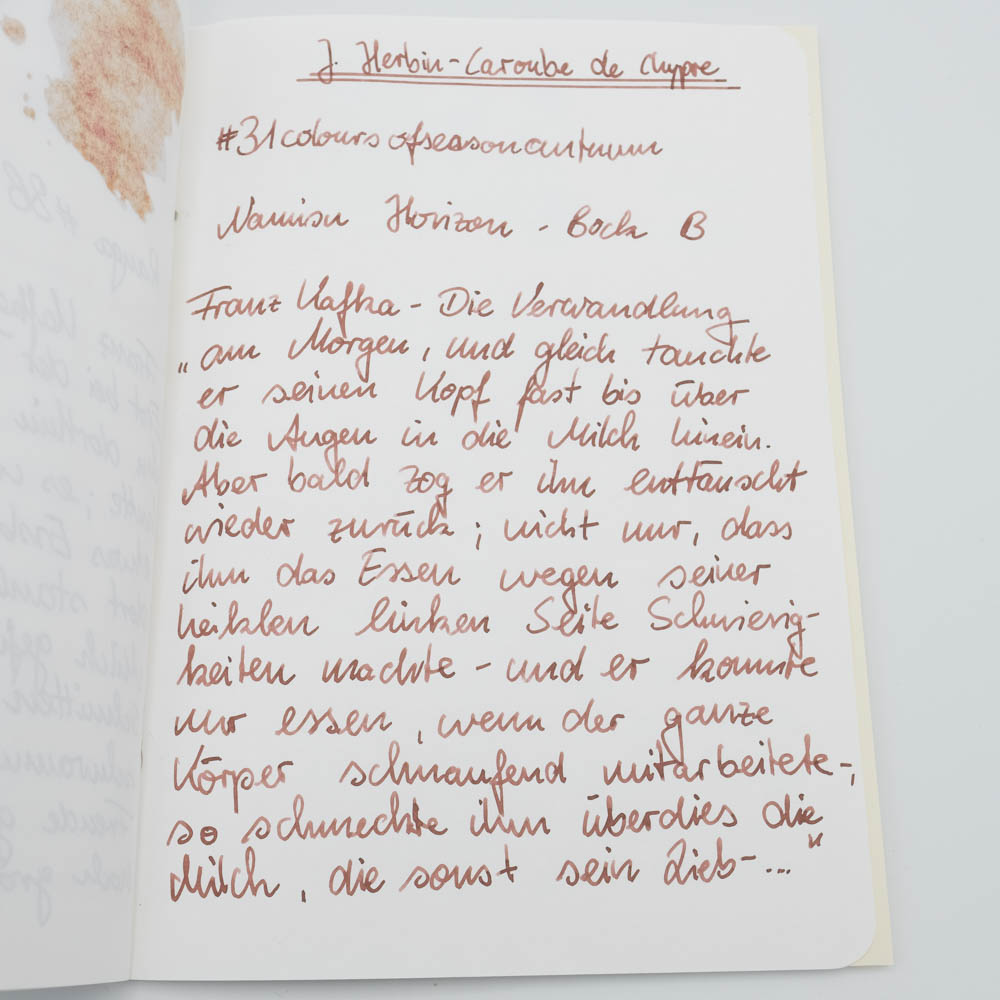 J. Herbin - Caroube de Chypre
#31coloursofseasonautumn
Namisu Horizon - Bock B
Franz Kafka - Die Verwandlung
„am Morgen, und gleich tauchte
er seinen Kopf fast bis über
die Augen in die Milch hinein.
Aber bald zog er ihn enttäuscht
wieder zurück; nicht nur, dass
ihm das Essen wegen seiner
heiklen linken Seite Schwierig-
keiten machte - und er konnte
nur essen, wenn der ganze
Körper schnaufend mitarbeitete-,
so schmeckte ihm überdies die
Milch, die sonst sein Lieb-..."